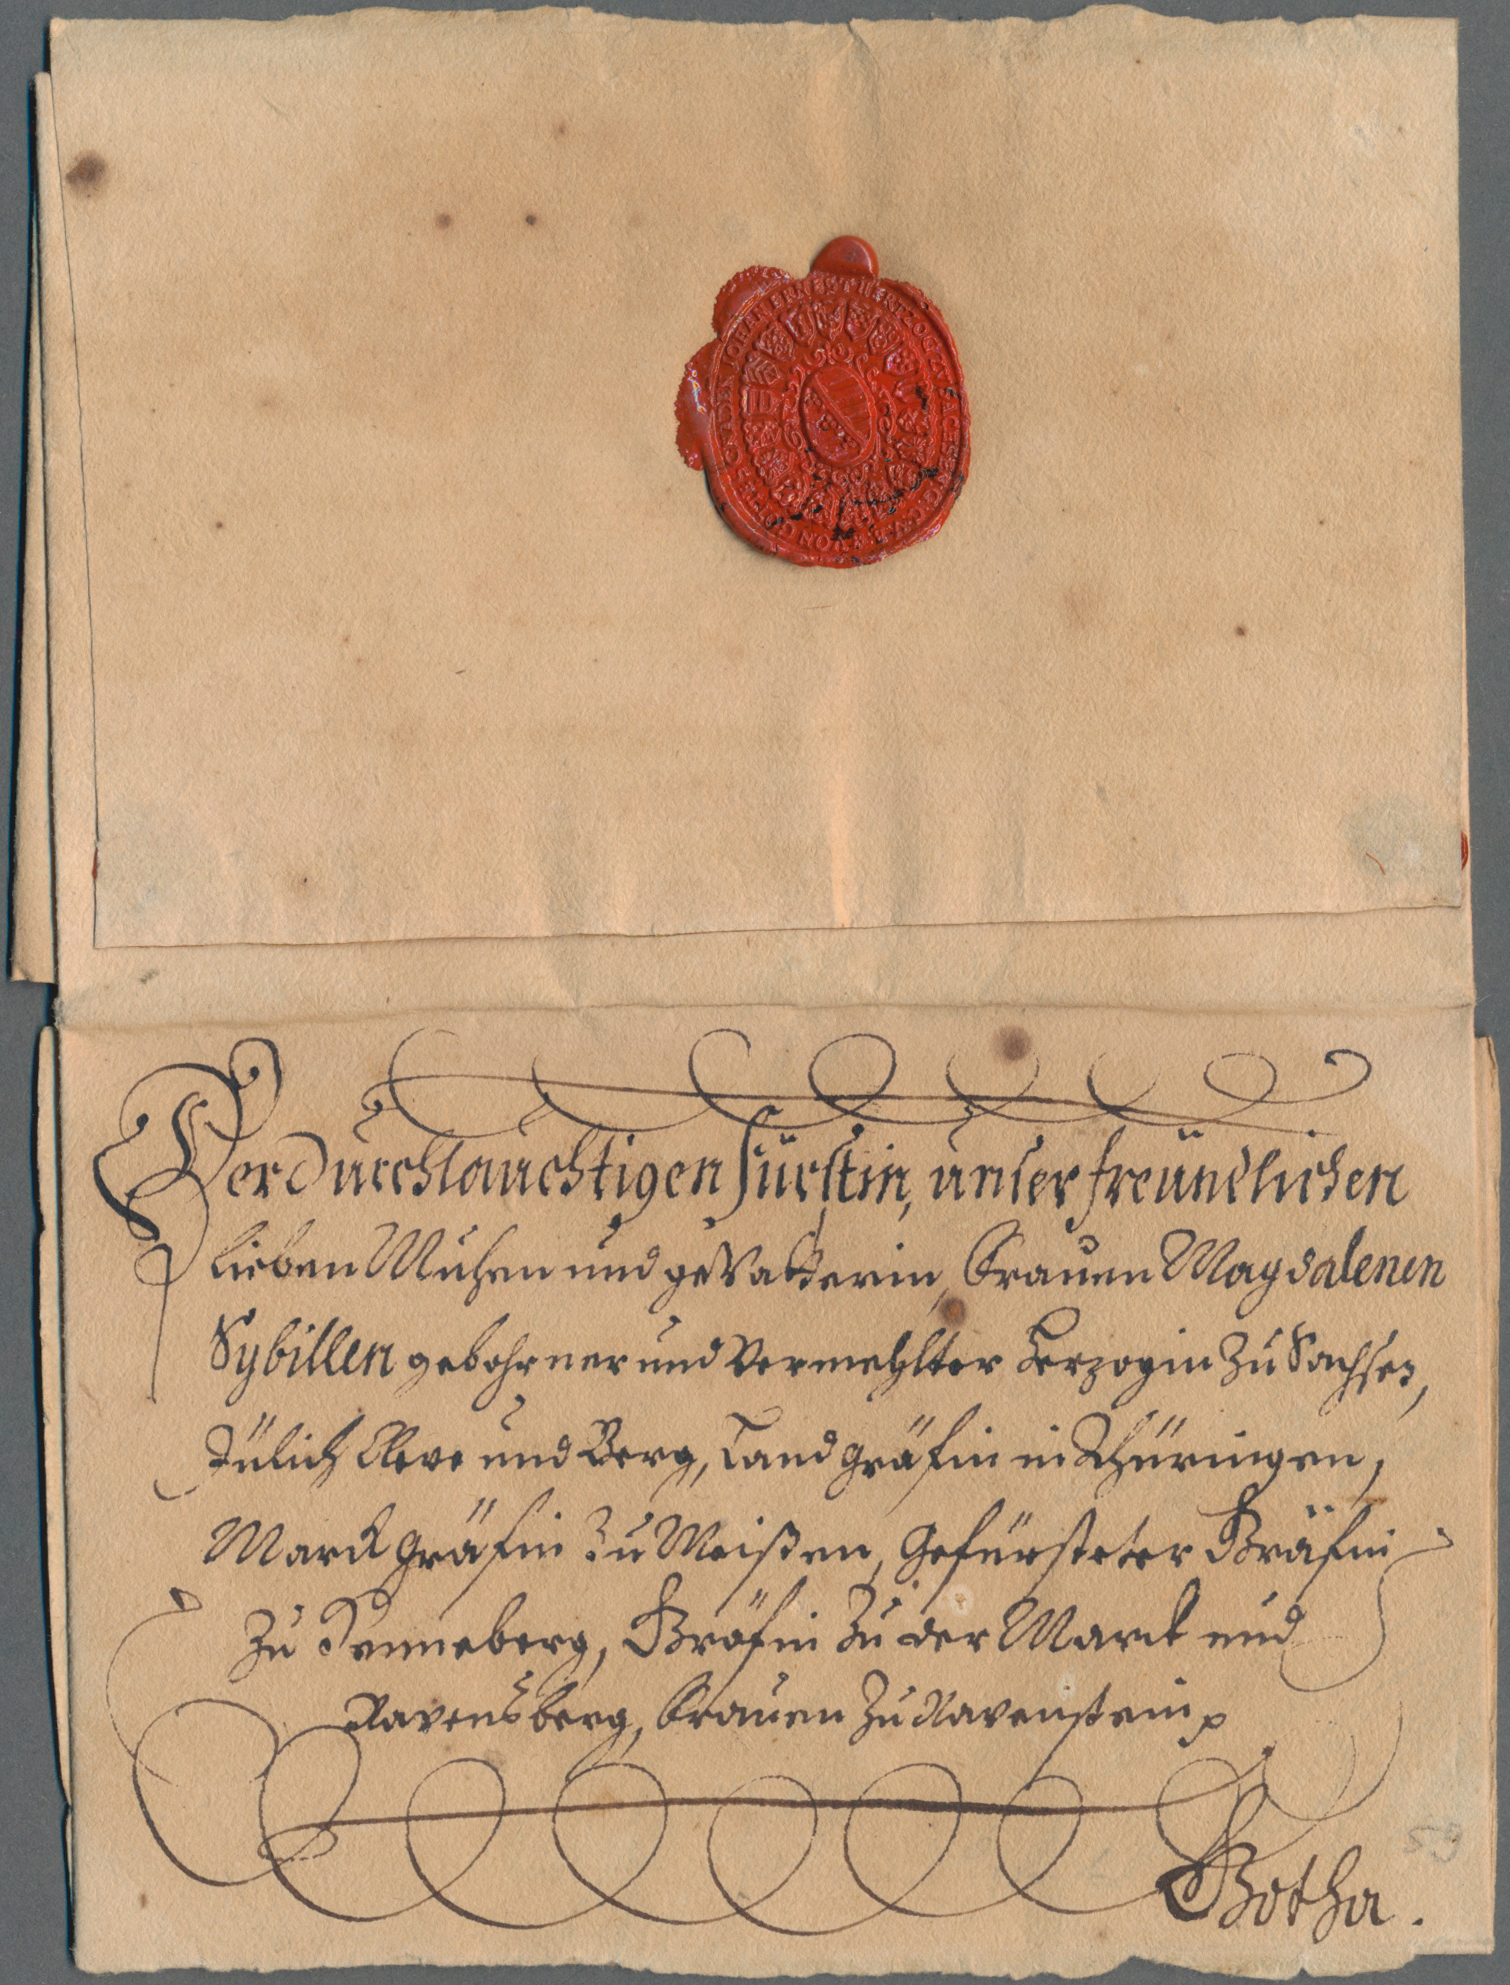 VON GOTTES GNADEN JOHAN ERNEST HERTZOG ZV SACHSEN
Der Durchlauchtigen Fürstin, unser freündlichen
lieben Muhmen und geVatterin, Frauen Magdalenen
Sybillen gebohrner und Vermehlter Herzogin Zu Sachsen,
Jülich Cleve und Berg, Landgräfin in Thüringen,
Marckgräfin Zu Meißen, Gefürsteter Gräfin
Zu Henneberg, Gräfin Zu der Marck und
Ravensberg, Frauen Zu Ravenstein
Gotha.
59